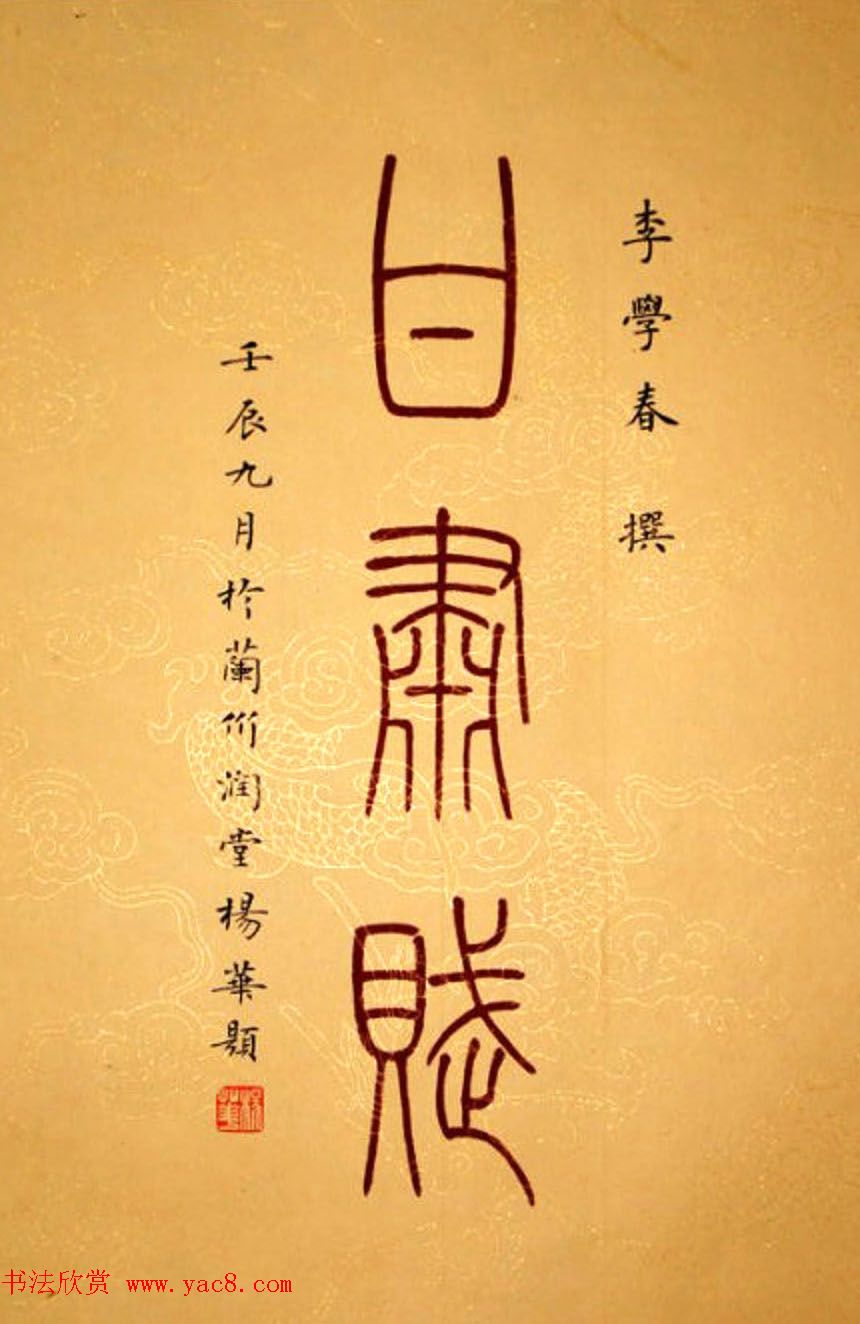 李學春 撰
甘肅賦
壬辰九月於蘭州潤堂楊華題
楊華
书法欣赏 www.yac8.com